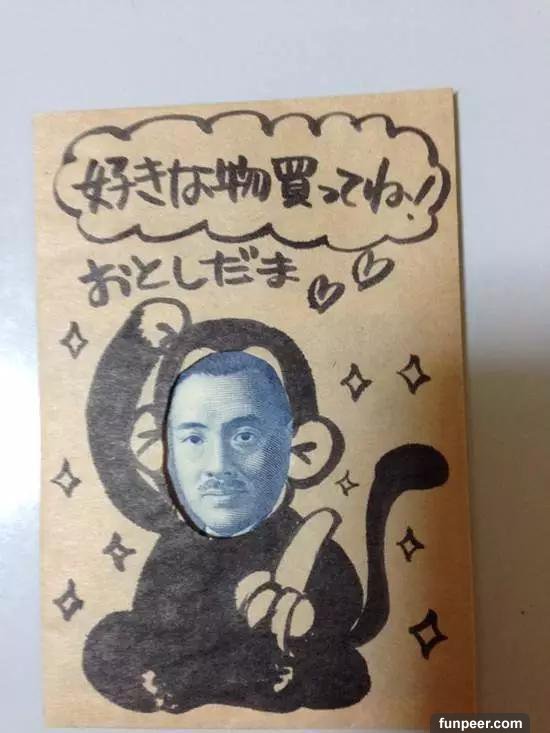 好きな物買ってね!
おとしだま♡♡
funpeer.com